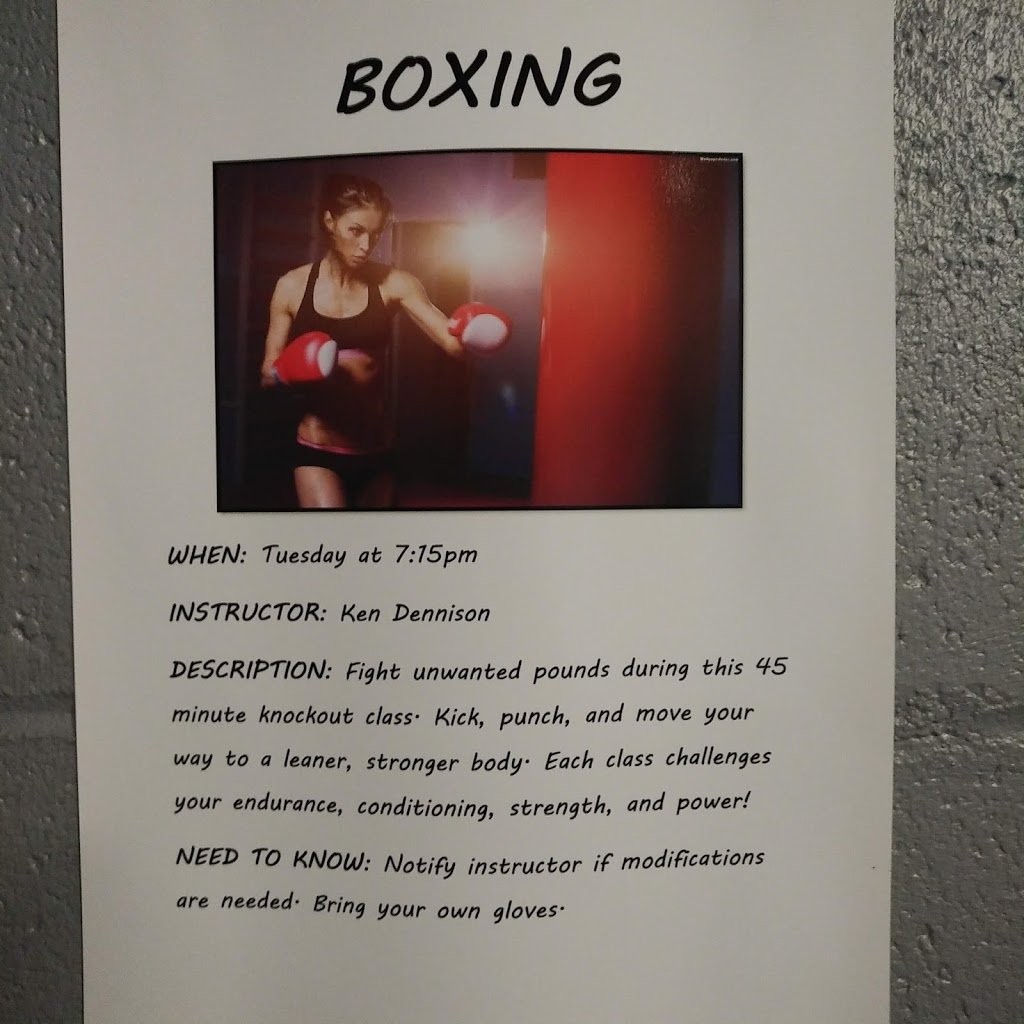 BOXING
WHEN: Tuesday at 7:15pm
INSTRUCTOR: Ken Dennison
DESCRIPTION: Fight unwanted pounds during this 45
minute knockout class. Kick, punch, and move your
way to a leaner, stronger body. Each class challenges
your endurance, conditioning, strength, and power!
NEED TO KNOW: Notify instructor if modifications
are needed. Bring your own gloves.